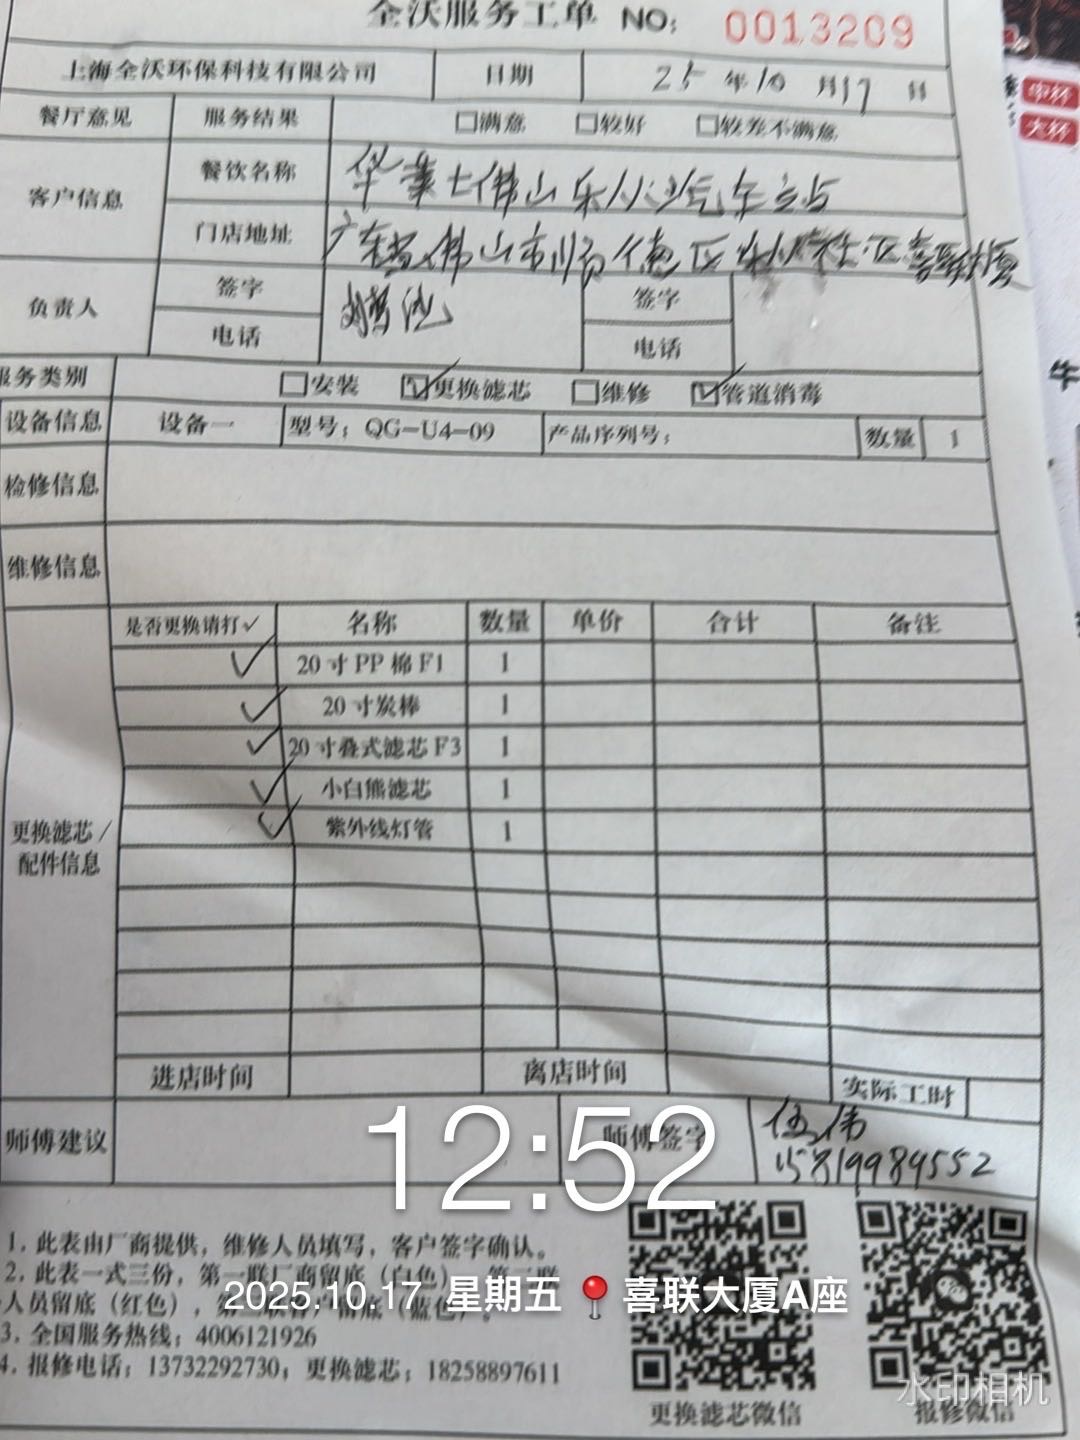 全沃服务工单 NO: 0013209
上海全沃环保科技有限公司 日期 25年10月17日
餐厅意见 服务结果 □满意 □较好 □较差不满意
客户信息 餐饮名称 华莱士佛山乐从汽车立占
门店地址 广东省佛山市顺德区 社区喜联大厦
负责人 签字 签字
电话 电话
服务类别 □安装 ☑更换滤芯 □维修 ☑管道消毒
设备信息 设备一 型号: QG-U4-09 产品序列号: 数量 1
检修信息
维修信息
更换滤芯/配件信息
是否更换请打✓ 名称 数量 单价 合计 备注
✓ 20寸PP棉F1 1
✓ 20寸炭棒 1
✓ 20寸叠式滤芯F3 1
✓ 小白熊滤芯 1
✓ 紫外线灯管 1
进店时间 离店时间 实际工时
师傅建议 师傅签字 伍伟
15819989552
12:52
1. 此表由厂商提供，维修人员填写，客户签字确认。
2. 此表一式三份，第一联厂商留底（白色），第二联
人员留底（红色），留底（蓝色）。
2025.10.17 星期五 📍喜联大厦A座
3. 全国服务热线: 4006121926
4. 报修电话: 13732292730; 更换滤芯: 18258897611
更换滤芯微信 报修微信
水印相机
中杯
大杯
牛